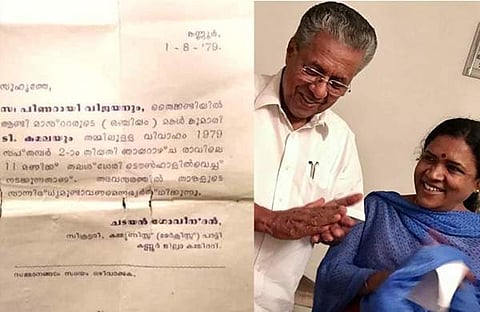 കണ്ണൂർ,
1-8-'79.
സുഹൃത്തേ,
സഖാ: പിണറായി വിജയനും, തൈക്കണ്ടിയിൽ
ആണ്ടി മാസ്റ്ററുടെ മകൾ കുമാരി
ടി. കമലയും തമ്മിലുള്ള വിവാഹം 1979
സപ്തമ്പർ 2-ാം തിയതി ഞായറാഴ്ച രാവിലെ
11 മണിക്ക് തലശ്ശേരി ടൌൺഹാളിൽവെച്ച്
നടക്കുന്നതാണ്. തദവസരത്തിൽ താങ്കളുടെ
സാന്നിദ്ധ്യമുണ്ടാവണമെന്നഭ്യർത്ഥിക്കുന്നു.
ചടയൻ ഗോവിന്ദൻ,
സിക്രട്ടരി, കമ്മ്യൂണിസ്റ്റ് (മാർക്സിസ്റ്റ്) പാട്ടി
കണ്ണൂർ ജില്ലാ കമ്മിററി.
സമ്മാനങ്ങൾ സദയം ഒഴിവാക്കുക.